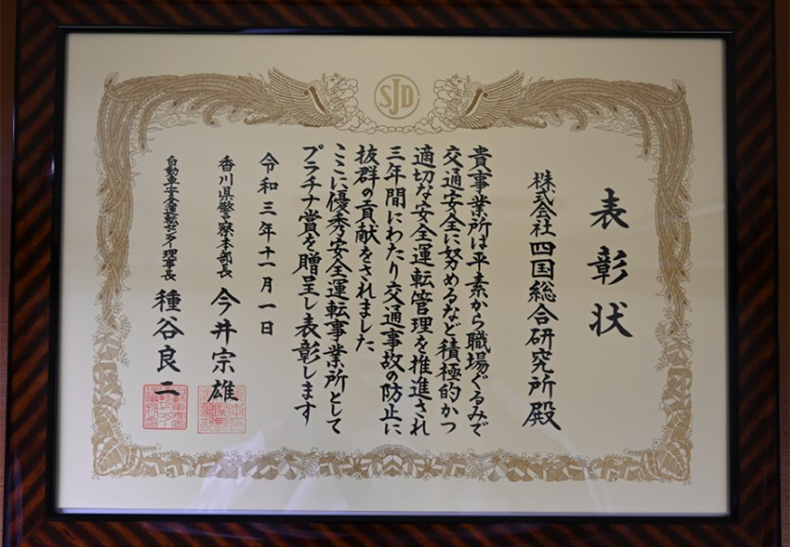 SJD
表彰状
株式会社四国総合研究所殿
貴事業所は平素から職場ぐるみで
交通安全に努めるなど積極的かつ
適切な安全運転管理を推進され
三年間にわたり交通事故の防止に
抜群の貢献をされました
ここに優秀安全運転事業所として
プラチナ賞を贈呈し表彰します
令和三年十一月一日
香川県警察本部長 今井宗雄
自動車安全運転センター理事長 種谷良二